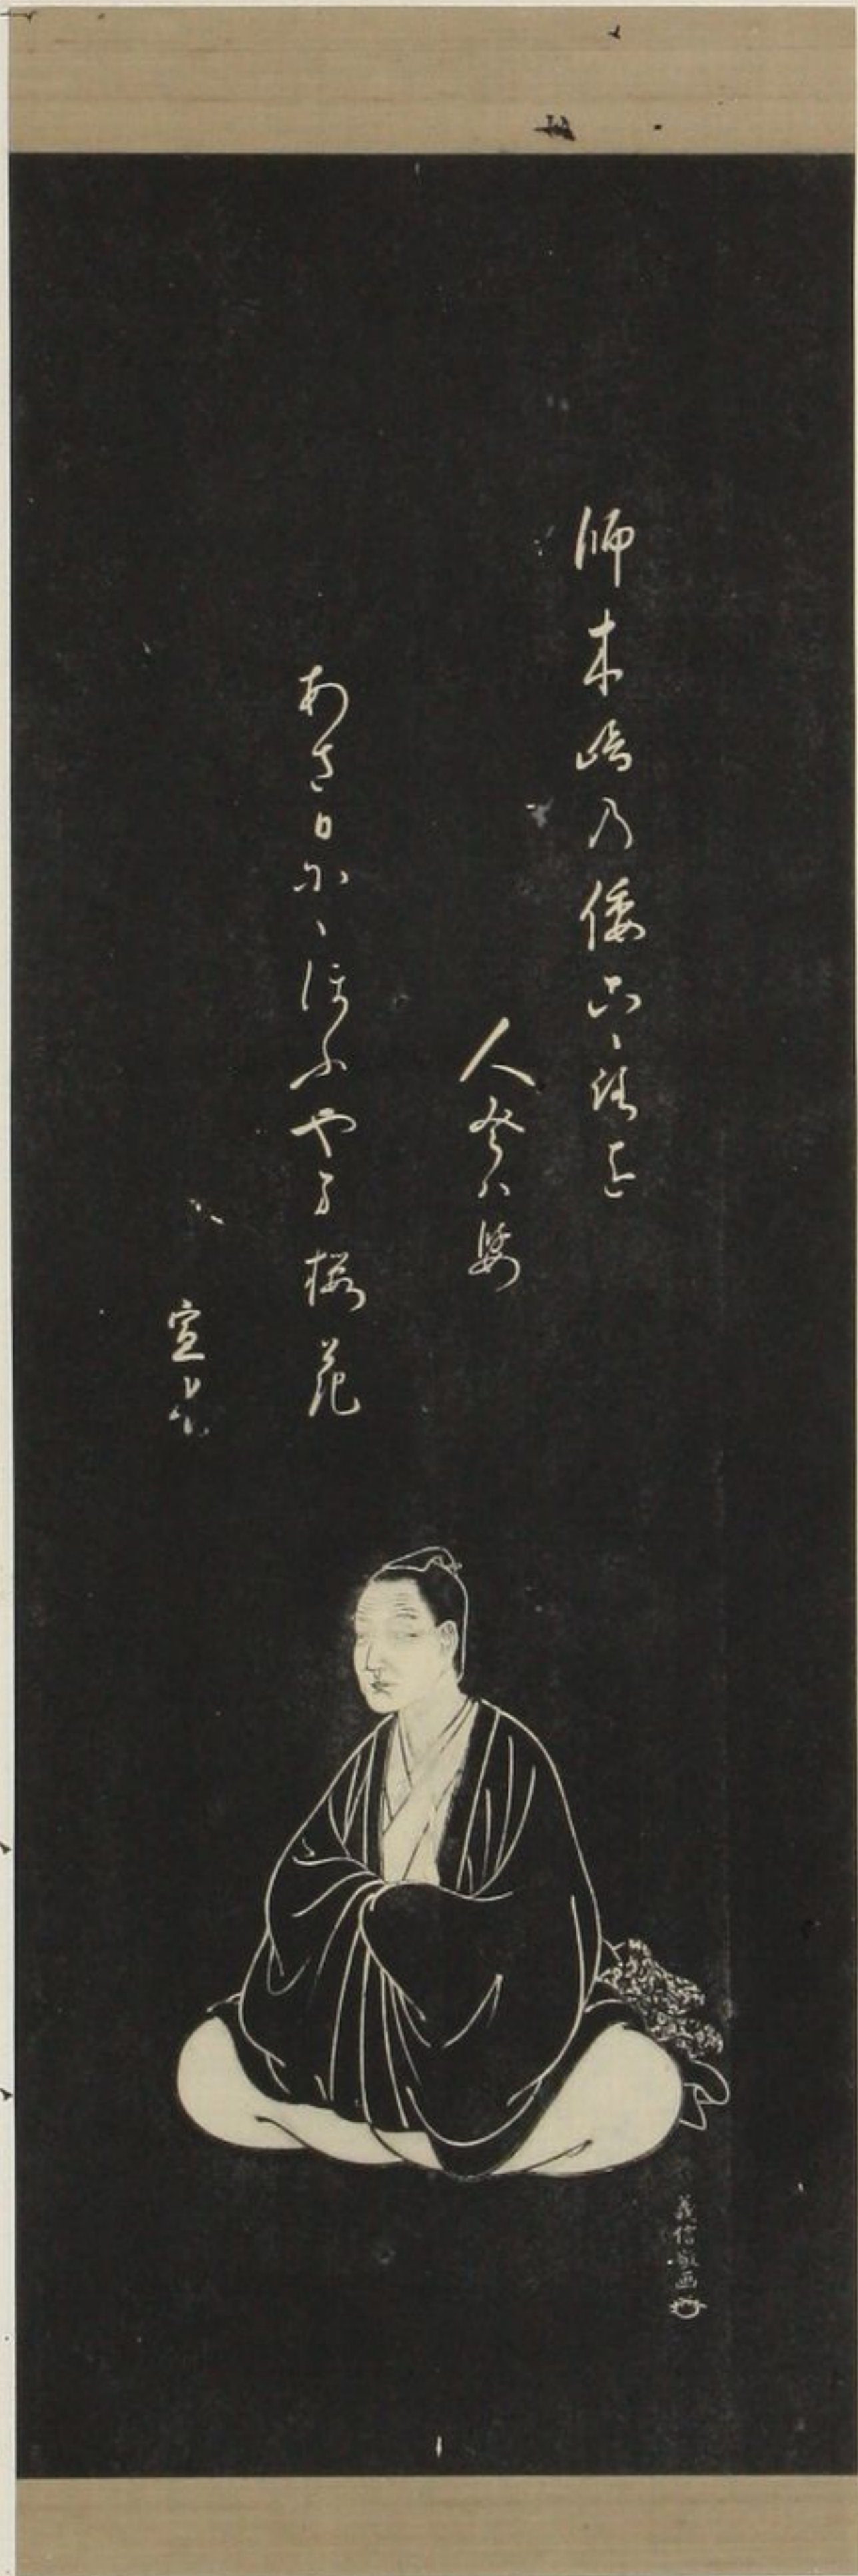 師木嶋乃倭こゝ路を
人登ハ婆
あさ日尓ゝほふやま桜花
宣長
義信敬画